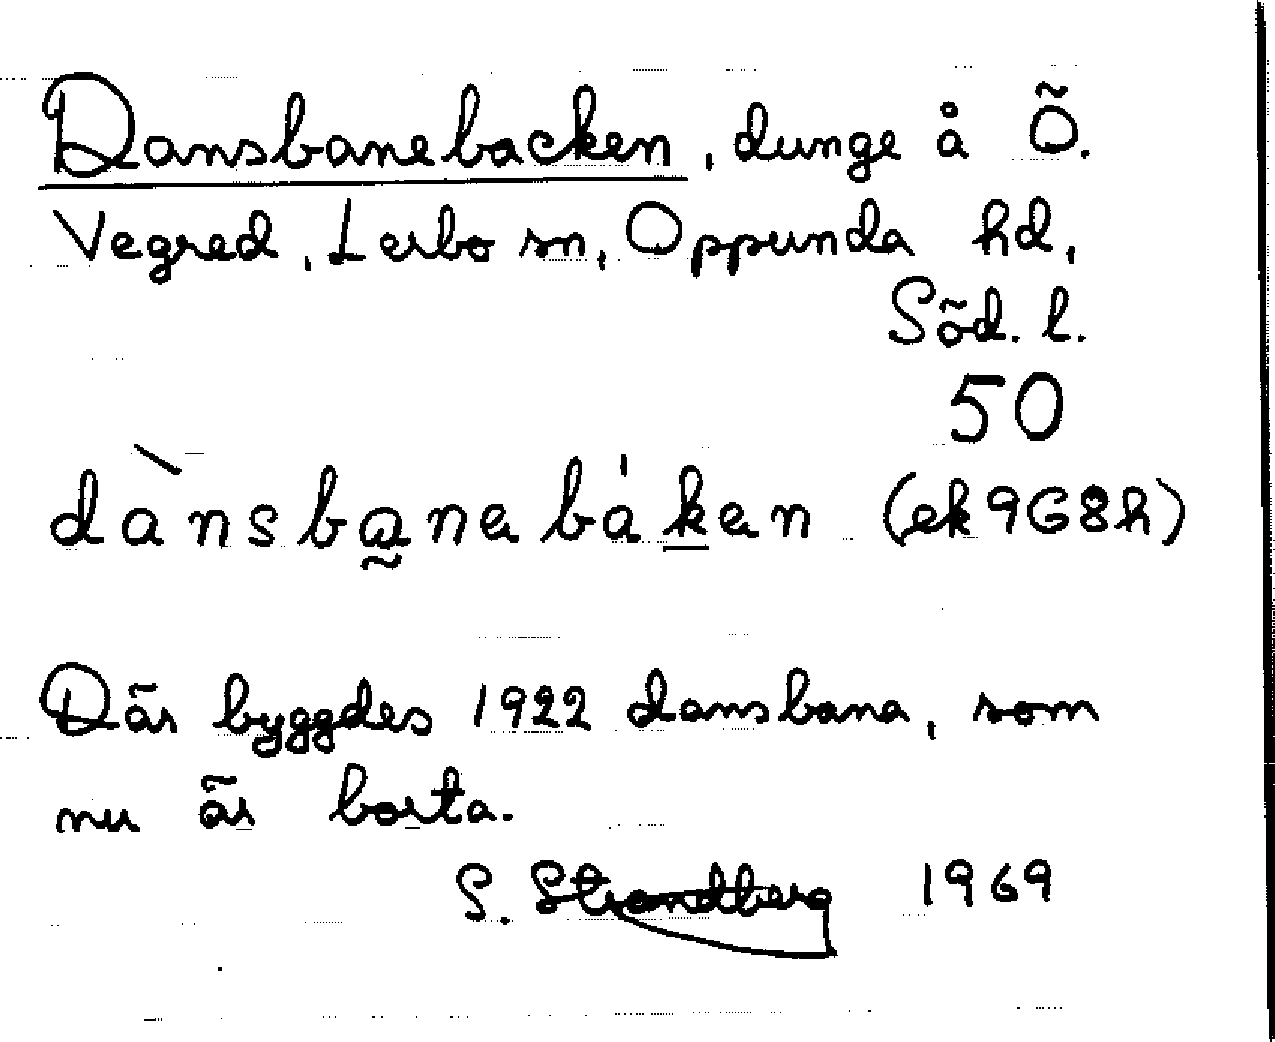 Dansbanebacken, dunge å Ö.
Vegred, Lerbo sn, Oppunda hd,
Söd. l.
50
dànsba̰nebáḵen (ek 9G8h)
Där byggdes 1922 dansbana, som
nu är borta.
S. Strandberg 1969